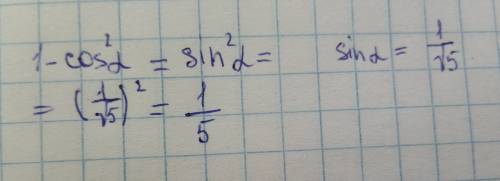 1-cos²α = sin²α =    sinα = 1/√5
= (1/√5)² = 1/5